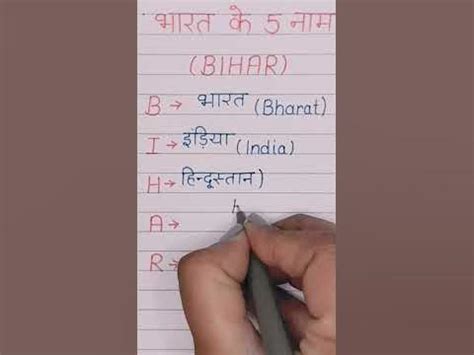 भारत के 5 नाम
(BIHAR)
B → भारत (Bharat)
I → इंड़िया (India)
H → हिन्दूस्तान)
A →
R →